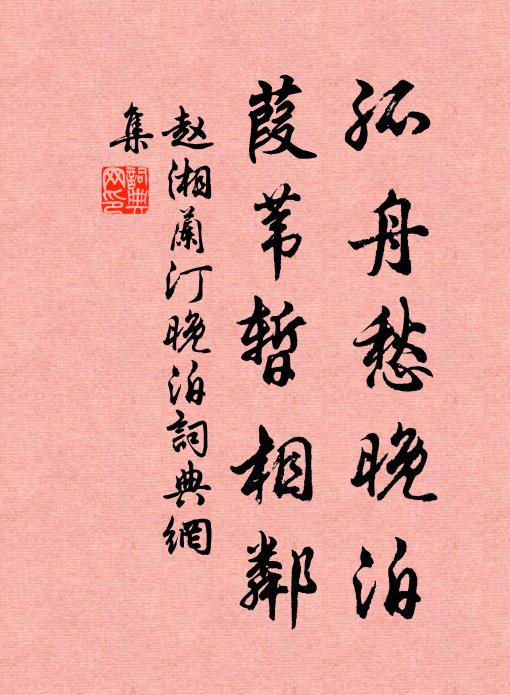 孤舟愁晚泊
葭苇暂相鄰
赵湘蘭汀晚泊詞典網
集
詞典
网印